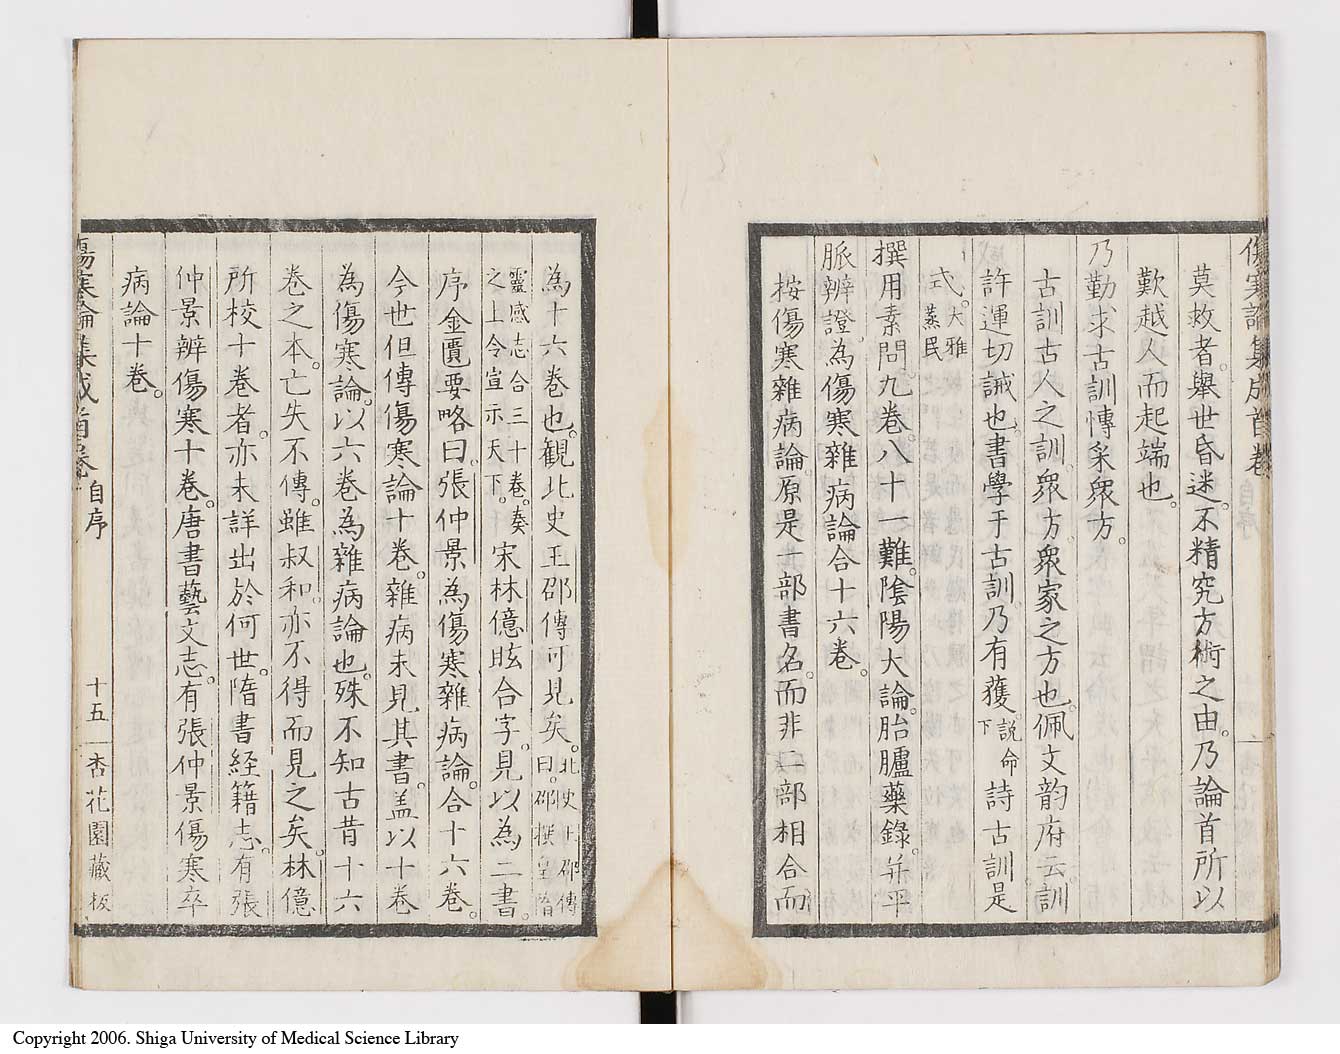 傷寒論集成首卷
莫救者。舉世昏迷。不精究方術之由。乃論首所以
歎越人而起端也。
乃勤求古訓博采衆方。
古訓古人之訓。衆方衆家之方也。佩文韵府云。訓
許運切誡也。書學于古訓。乃有獲。説命下 詩古訓是
式。大雅蒸民
撰用素問。九卷。八十一難。陰陽大論。胎臚藥錄。并平
脈辨證。為傷寒雜病論合十六卷。
按傷寒雜病論。原是一部書名。而非二部相合而
為十六卷也。觀北史王邵傳可見矣。北史王邵傳曰。邵撰皇隋
靈感志合三十卷。奏之上令宣示天下。宋林億眩合字。見以為二書。
序金匱要略曰。張仲景為傷寒雜病論。合十六卷。
今世但傳傷寒論十卷。雜病未見其書。盖以十卷
為傷寒論。以六卷為雜病論也。殊不知古昔十六
卷之本。亡失不傳。雖叔和。亦不得而見之矣。林億
所校十卷者。亦未詳出於何世。隋書経籍志。有張
仲景辨傷寒十卷。唐書藝文志。有張仲景傷寒卒
病論十卷。
傷寒論集成首卷 自序 十五 杏花園藏板
Copyright 2006. Shiga University of Medical Science Library